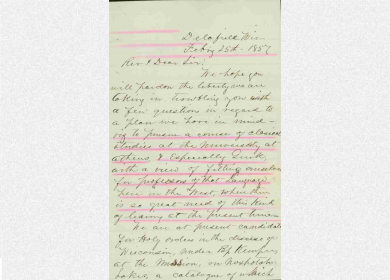 Delafield Win
Feby 25th - 1857
Rev & Dear Sir;
We hope you
will pardon the liberty we are
taking in troubling you with
a few questions in regard to
a plan we have in mind -
viz to pursue a course of classical
studies at the University at
Athens & Especially Greek
with a view of fitting ourselves
for professors of that language
here in the West, when there
is so great need of this kind
of learning at the present time.
We are at present candidates
for Holy orders in the diocese of
Wisconsin, under Bp Kemper
at the Mission, on Nashotah
Lakes, a catalogue of which